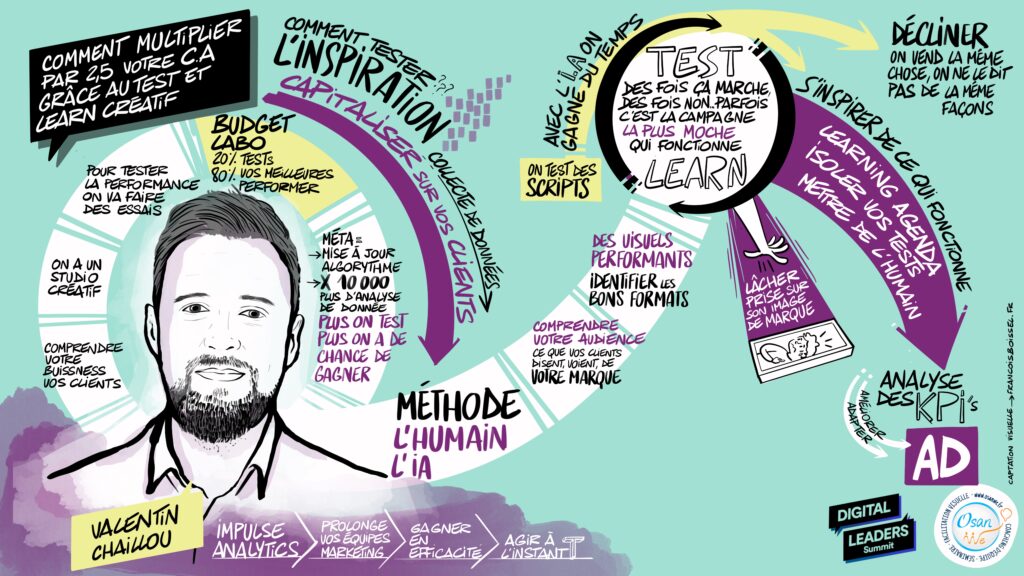 COMMENT MULTIPLIER
PAR 2,5 VOTRE C.A
GRÂCE AU TEST ET
LEARN CRÉATIF
BUDGET
LABO
20% TESTS
80% VOS MEILLEURES
PERFORMER
POUR TESTER
LA PERFORMANCE
ON VA FAIRE
DES ESSAIS
ON A UN
STUDIO
CRÉATIF
COMPRENDRE
VOTRE
BUISSNESS
VOS CLIENTS
MÉTA =
→ MISE À JOUR
ALGORYTHME
→ X 10 000
PLUS D'ANALYSE
DE DONNÉE
PLUS ON TEST
PLUS ON A DE
CHANCE DE
GAGNER
COMMENT TESTER ???
L'INSPIRATION
CAPITALISER SUR VOS CLIENTS
COLLECTE DE DONNÉES
MÉTHODE
L'HUMAIN
L'iA
COMPRENDRE
VOTRE AUDIENCE
CE QUE VOS CLIENTS
DISENT, VOIENT, DE
VOTRE MARQUE
DES VISUELS
PERFORMANTS
IDENTIFIER LES
BONS FORMATS
ON TEST DES
SCRIPTS
AVEC L'iA ON
GAGNE DU TEMPS
TEST
DES FOIS ÇA MARCHE,
DES FOIS NON..PARFOIS
C'EST LA CAMPAGNE
LA PLUS MOCHE
QUI FONCTIONNE
LEARN
LÂCHER
PRISE SUR
SON IMAGE
DE MARQUE
DÉCLINER
ON VEND LA MÊME
CHOSE, ON NE LE DIT
PAS DE LA MÊME
FAÇONS
S'INSPIRER DE CE QUI FONCTIONNE
LEARNING AGENDA
ISOLER VOS TESTS
METTRE DE L'HUMAIN
ANALYSE
DES KPI's
AMÉLIORER
ADAPTER
AD
VALENTIN
CHAILLOU
IMPULSE
ANALYTICS
PROLONGE
VOS ÉQUIPES
MARKETING
GAGNER
EN
EFFICACITÉ
AGIR À
L'INSTANT T
DIGITAL
LEADERS
Summit
CAPTATION VISUELLE → FRANCOISBOISSEL.FR
FACILITATION VISUELLE • www.osanwe.fr • COACHING D'ÉQUIPE • SÉMINAIRE
Osan
We